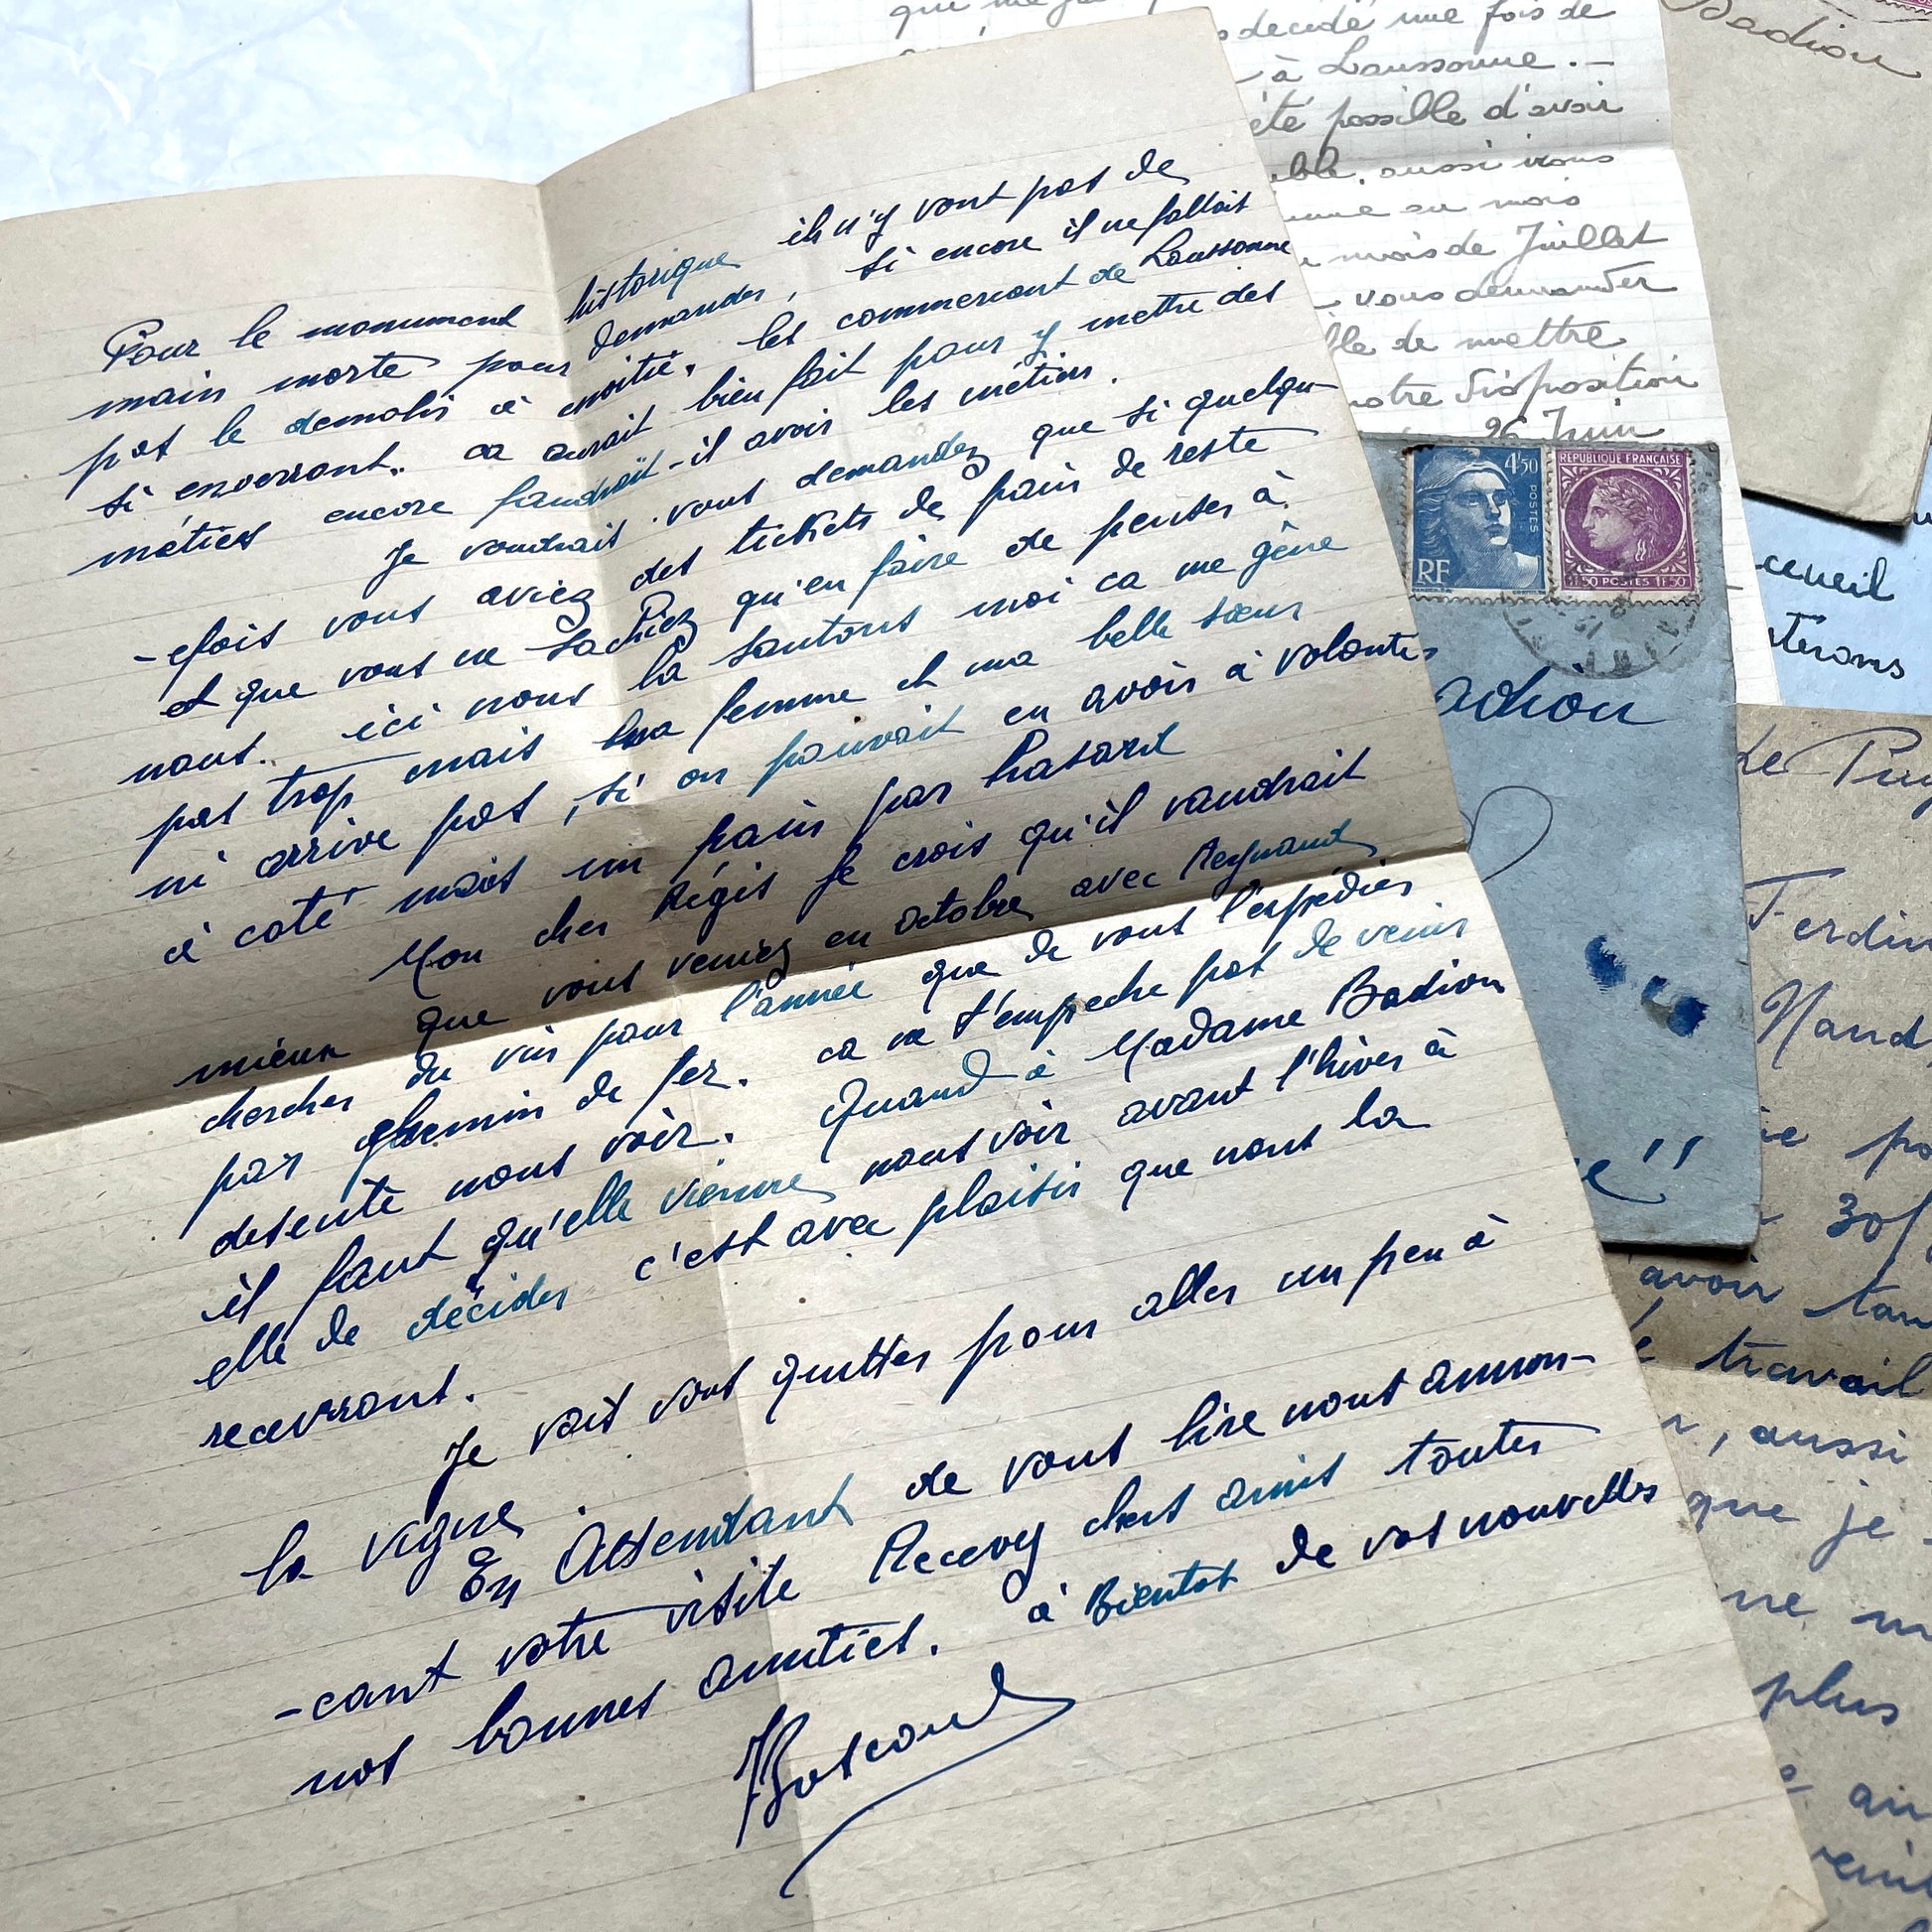 Pour le monument historique ils n'y vont pas de
main morte pour demander, si encore il ne fallait
pas le demolir à moitié. les commercant de Laussonne
si enverront. ca aurait bien fait pour y mettre des
métiers encore faudrait-il avoir les métiers.
Je voudrais vous demandez que si quelqu-
-efois vous aviez des tickets de pain de reste
et que vous ne sachiez qu'en faire de penser à
nous. ici nous la sautons moi ca me gêne
pas trop mais ma femme et ma belle sœur
ni arrive pas, si on pouvait en avoir à volonter
à coté mais un pain par hasard
Mon cher Régis je crois qu'il vaudrait
mieux que vous veniez en octobre avec Reynaud
chercher du vin pour l'année que de vous l'expédier
par chemin de fer. ca ne t'empeche pas de venir
desente nous voir. Quand à Madame Badiou
il faut qu'elle vienne nous voir avant l'hiver à
elle de décider c'est avec plaisir que nous la
recevrons.
Je vait vous quitter pour aller un peu à
la vigne.
En Attendant de vous lire nous annon-
-cant votre visite Recevez chers amis toutes
nos bonnes amitiés. à Bientot de vos nouvelles
decidé une fois de
à Laussonne. -
été possible d'avoir
aussi vous
au mois
mois de Juillet
vous demander
de mettre
notre disposition
26 Juin
Badiou
4F50
POSTES
RF
REPUBLIQUE FRANÇAISE
1F50 POSTES 1F50
adiou
ceuil
terons
Le Puy
Ferdin
Nand
30f
avoir tan
travail
, aussi
que je
plus